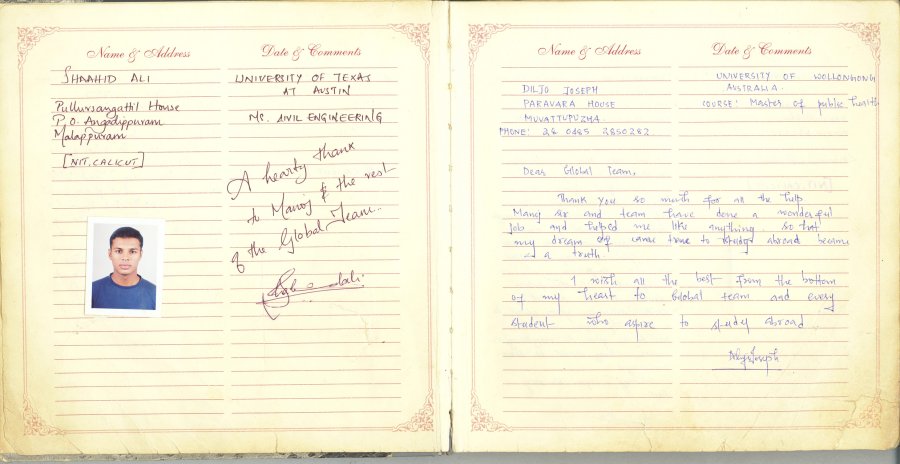 Name & Address
SHAAHID ALI
Pullursangathil House
P.O. Angadippuram
Malappuram
[NIT, CALICUT]
Date & Comments
UNIVERSITY OF TEXAS
AT AUSTIN
MS. CIVIL ENGINEERING
A hearty thank
to Manoj & the rest
of the Global Team..
Name & Address
DILJO JOSEPH
PARAVARA HOUSE
MUVATTUPUZHA
PHONE: 0485 2850282
Date & Comments
UNIVERSITY OF WOLLONGONG
AUSTRALIA.
COURSE: Master of public health
Dear Global Team,
Thank you so much for all the help
Manoj sir and team have done a wonderful
job and helped me like anything. so that
my dream of came true to study abroad became
a truth.
I wish all the best from the bottom
of my heart to Global team and every
student who aspire to study abroad